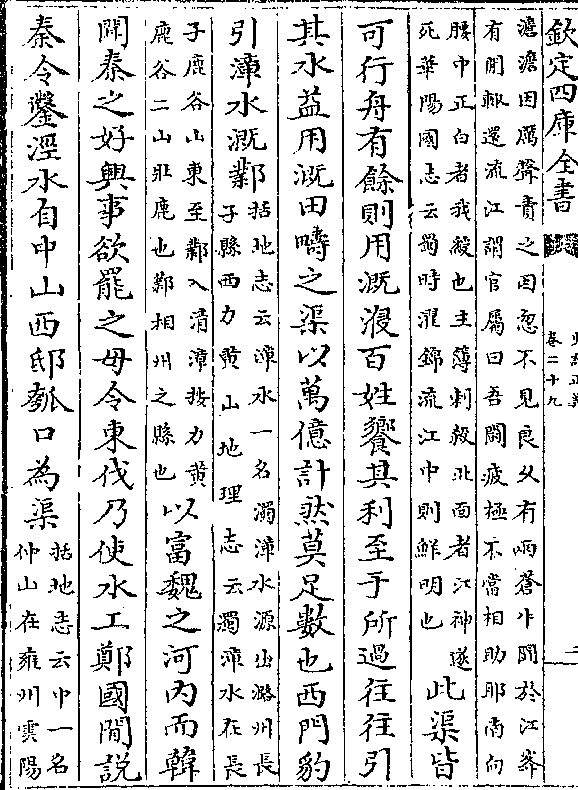 欽定四庫全書
史記正義
卷二十九
澹澹因厲聲責之因忽不見良久有兩蒼牛鬭於江岸
有閒輒還流江謂官屬曰吾鬭疲極不當相助耶南向
腰中正白者我綬也主簿刺殺北面者江神遂
死華陽國志云蜀時濯錦流江中則鮮明也
此渠皆
可行舟有餘則用溉浸百姓饗其利至于所過往往引
其水益用溉田疇之渠以萬億計然莫足數也西門豹
引漳水溉鄴
括地志云漳水一名濁漳水源出潞州長
子縣西力黄山地理志云濁漳水在長
子鹿谷山東至鄴入清漳按力黄
鹿谷二山壯鹿也鄴相州之縣也
以富魏之河内而韓
聞秦之好興事欲罷之毋令東伐乃使水工鄭國閒説
秦令鑿涇水自中山西邸瓠口為渠
括地志云中一名
仲山在雍州雲陽